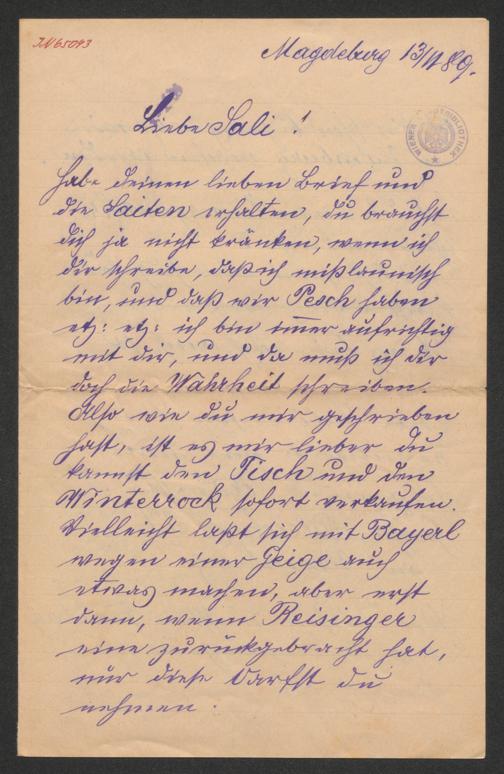 IN 65093
Magdeburg 13/11 89.
WIENER STADTBIBLIOTHEK
Liebe Sali!
habe deinen lieben Brief und
die Saiten erhalten, du brauchst
dich ja nicht kränken, wenn ich
dir schreibe, daß ich mißlaunisch
bin, und daß wir Pesch haben
etz: etz: ich bin immer aufrichtig
mit dir, und da muß ich dir
doch die Wahrheit schreiben.
Also wie du mir geschrieben
hast, ist es mir lieber du
kannst den Tisch und den
Winterrock sofort verkaufen.
Vielleicht laßt sich mit Bayerl
wegen einer Geige auch
etwas machen, aber erst
dann, wenn Reisinger
eine zurückgebracht hat,
nur diese darfst du
nehmen.